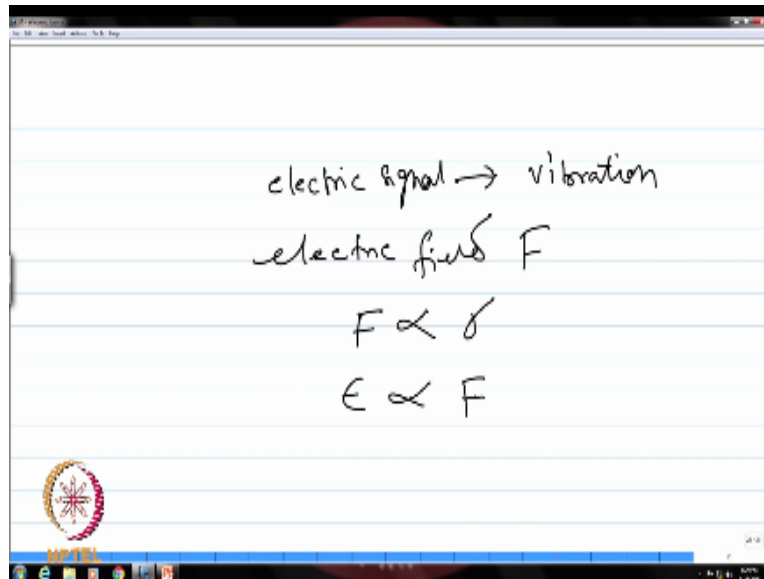 electric signal → vibration
electric field F
F ∝ σ
ϵ ∝ F
NPTEL